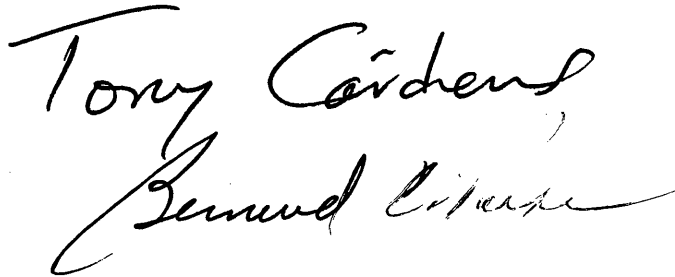 Tony Cárdenas
Bernard